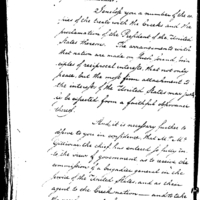 I enclose you a number of the co-
pies of the treaty with the Creeks and the
proclamation of the President of the United
States thereon. The arrangements with
that nation are made on such
ciples of reciprocal interests, that not only
peace, but the most firm attachment to
the interests of the United States may justly
be expected from a faithful observance
thereof.
And it is necessary further to
inform you in confidence, that Mr. Mc
Gillivray the chief, has entered so fully in
to the views of government as to receive the
commission of a brigadier general in the
service of the United States, and as their
agent to the Creek nation — and to take